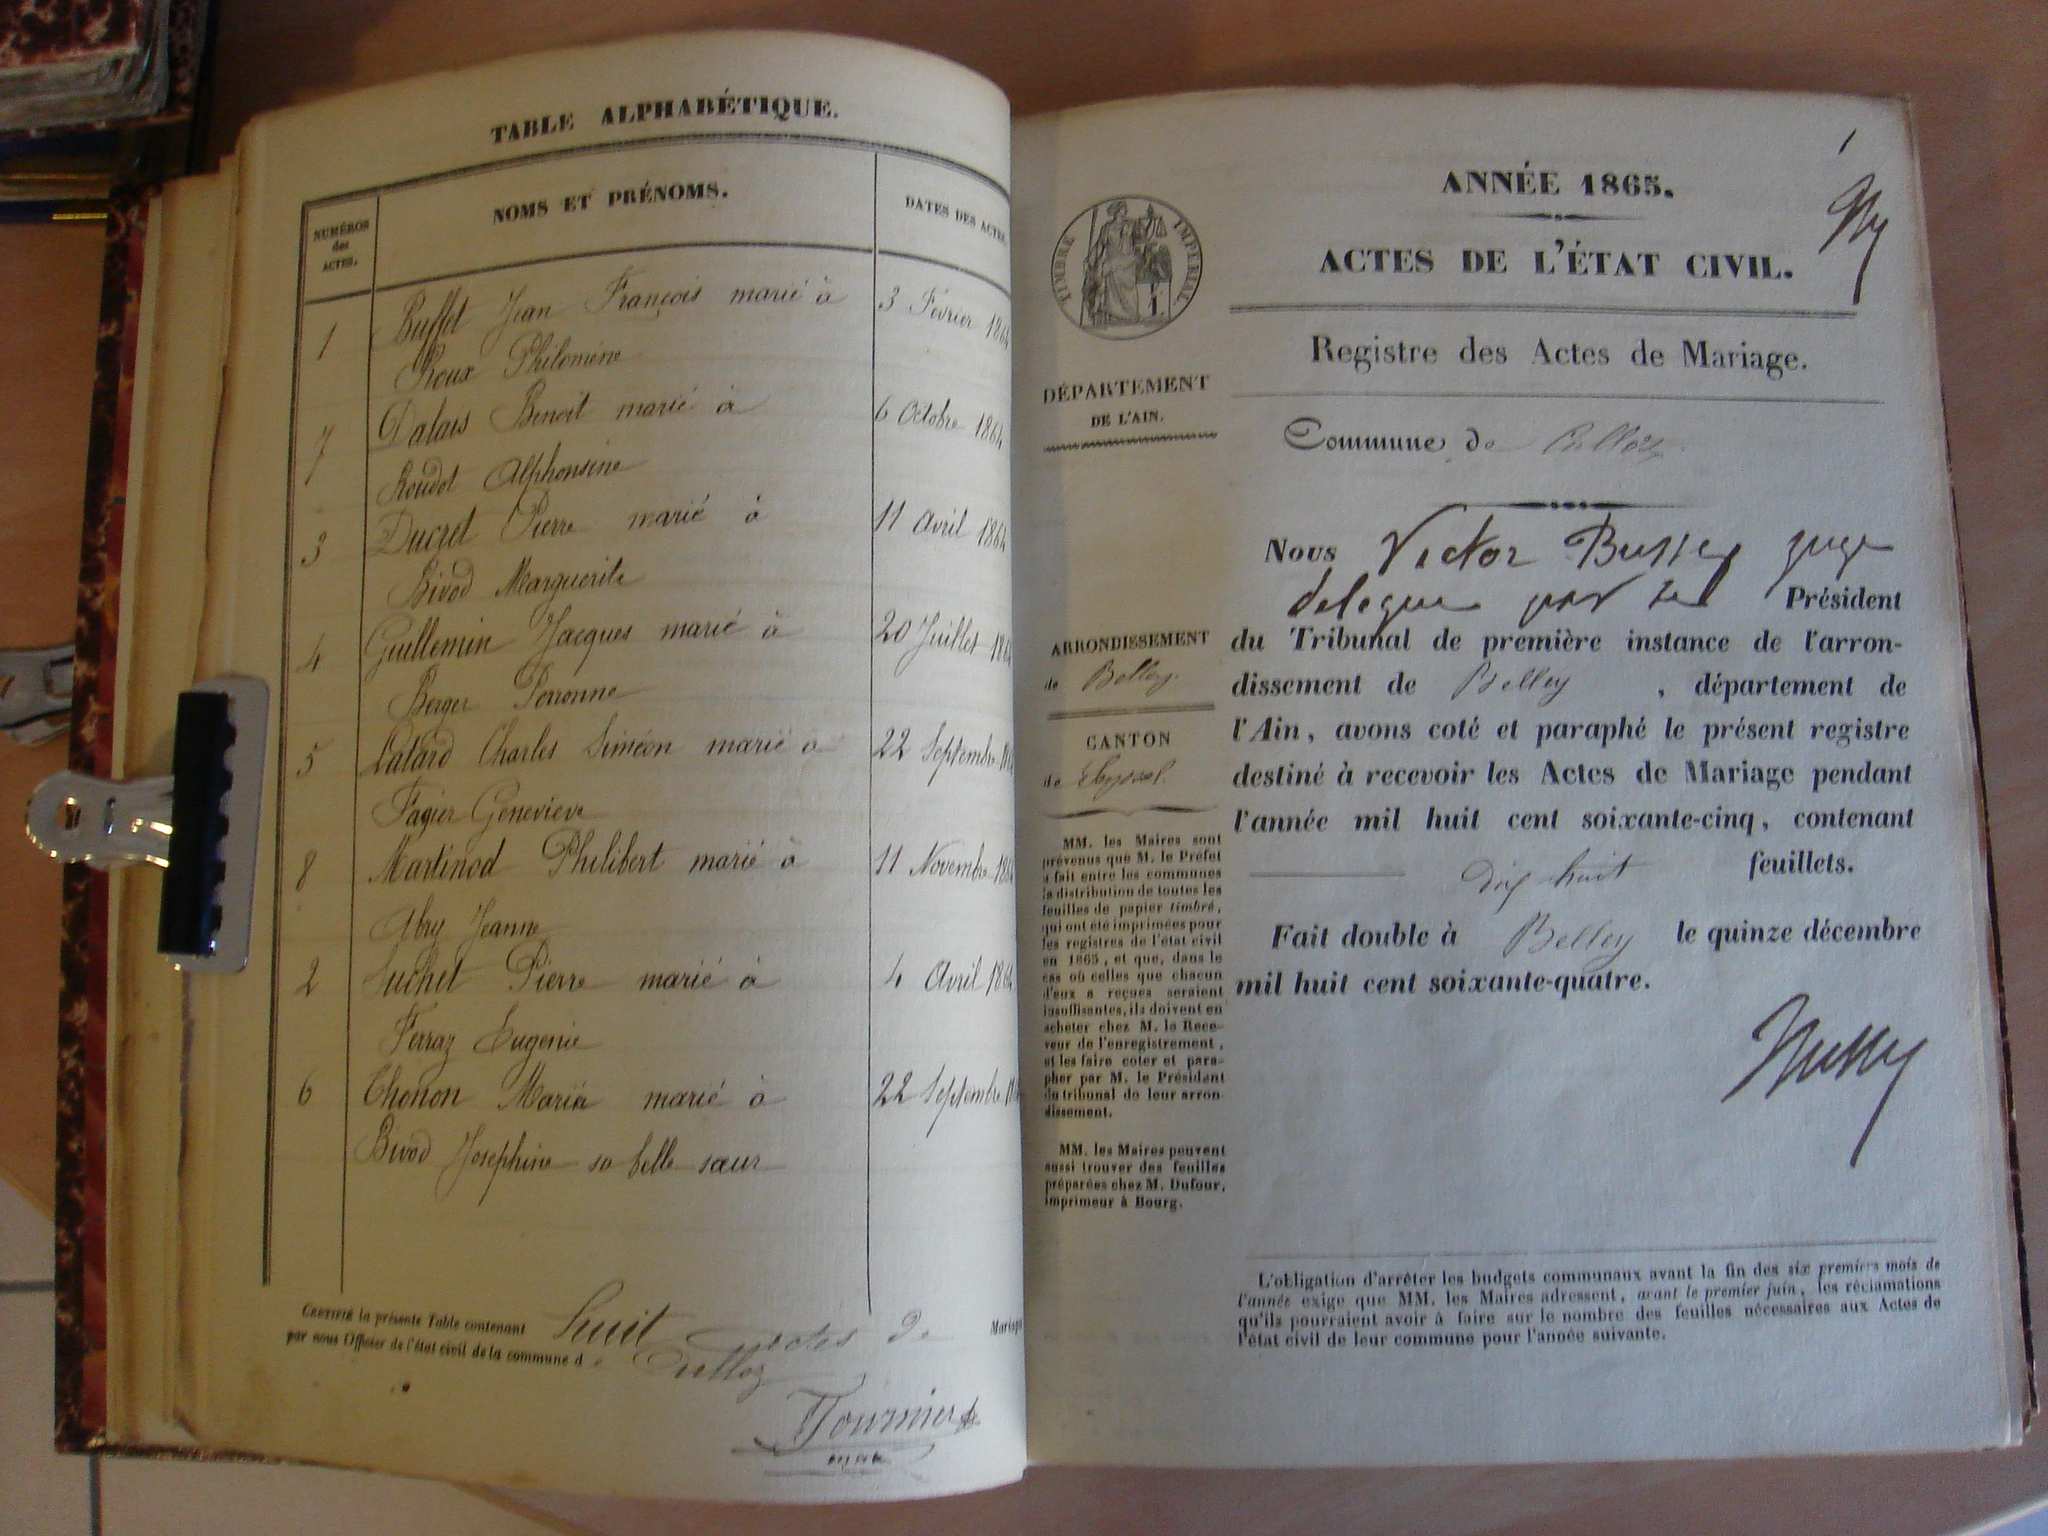 TABLE ALPHABÉTIQUE.
NUMÉROS
des
ACTES.
NOMS ET PRÉNOMS.
DATES DES ACTES.
1 Buffet Jean François marié à 3 Fevrier 1864
Roux Philomène
7 Dalais Benoit marié à 6 Octobre 1864
Roudet Alphonsine
3 Ducret Pierre marié à 11 Avril 1864
Bivod Marguerite
4 Guillemin Jacques marié à 20 Juillet 1864
Berger Peronne
5 Charles Siméon marié à 22 Septembre
Fagier Genevieve
8 Martinod Philibert marié à 11 Novembre 1864
Abry Jeanne
2 Suchet Pierre marié à 4 Avril 1864
Ferraz Eugenie
6 Thonon Maria marié à 22 Septembre
Bivod Josephine sa belle sœur
CERTIFIÉ la présente Table contenant huit actes de Mariage
par nous Officier de l'état civil de la commune de Culloz
Tournier
ANNÉE 1865.
ACTES DE L'ÉTAT CIVIL.
TIMBRE IMPERIAL
Registre des Actes de Mariage.
DÉPARTEMENT
DE L'AIN.
Commune de Culloz
Nous Victor Bussy juge
délégué par le Président
du Tribunal de première instance de l'arron-
dissement de Belley, département de
l'Ain, avons coté et paraphé le présent registre
destiné à recevoir les Actes de Mariage pendant
l'année mil huit cent soixante-cinq, contenant
dix huit feuillets.
Fait double à Belley le quinze décembre
mil huit cent soixante-quatre.
ARRONDISSEMENT
de Belley.
CANTON
de Seyssel.
MM. les Maires sont
prévenus que M. le Préfet
a fait entre les communes
la distribution de toutes les
feuilles de papier timbré,
qui ont été imprimées pour
les registres de l'état civil
en 1865, et que, dans le
cas où celles que chacun
d'eux a reçues seraient
insuffisantes, ils doivent en
acheter chez M. le Rece-
veur de l'enregistrement,
et les faire coter et para-
pher par M. le Président
du tribunal de leur arron-
dissement.
MM. les Maires peuvent
aussi trouver des feuilles
préparées chez M. Dufour,
imprimeur à Bourg.
L'obligation d'arrêter les budgets communaux avant la fin des six premiers mois de
l'année exige que MM. les Maires adressent, avant le premier juin, les réclamations
qu'ils pourraient avoir à faire sur le nombre des feuilles nécessaires aux Actes de
l'état civil de leur commune pour l'année suivante.